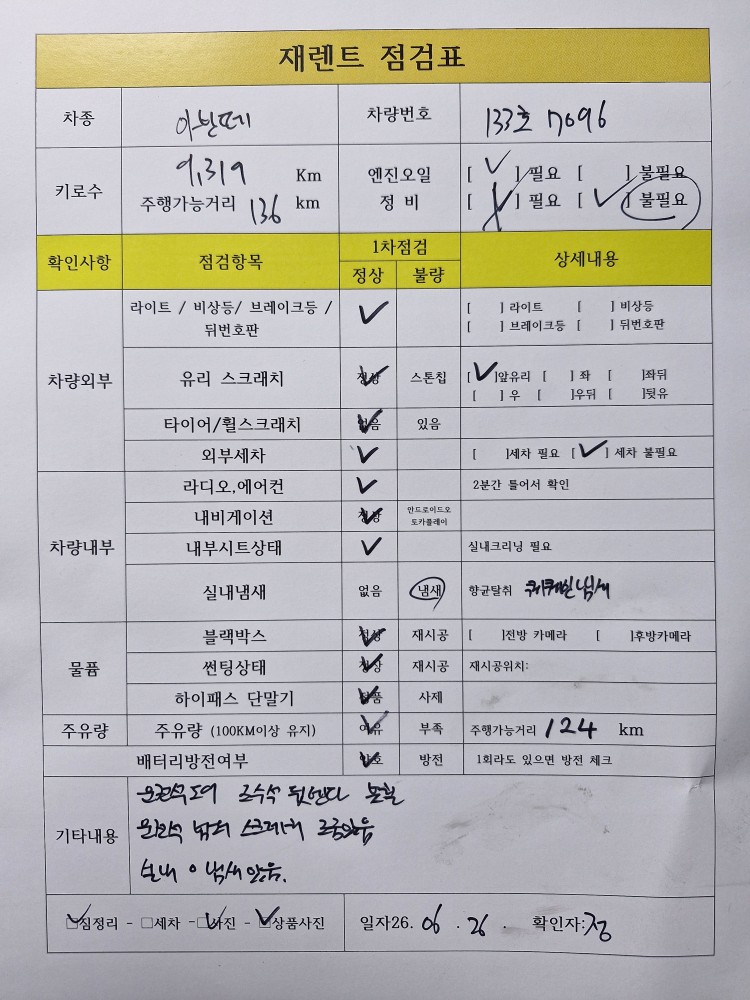 재렌트 점검표
차종 아반떼 차량번호 133호 7096
키로수 9,319 Km 엔진오일 [✓] 필요 [ ] 불필요
주행가능거리 136 km 정 비 [✓] 필요 [✓] 불필요
확인사항 점검항목 1차점검 상세내용
정상 불량
차량외부 라이트 / 비상등/ 브레이크등 / 뒤번호판 ✓ [ ] 라이트 [ ] 비상등
[ ] 브레이크등 [ ] 뒤번호판
유리 스크래치 정상 ✓ 스톤칩 [✓]앞유리 [ ] 좌 [ ]좌뒤
[ ] 우 [ ]우뒤 [ ]뒷유
타이어/휠스크래치 없음 ✓ 있음
외부세차 ✓ [ ]세차 필요 [✓] 세차 불필요
차량내부 라디오,에어컨 ✓ 2분간 틀어서 확인
내비게이션 정상 ✓ 안드로이드오
토카플레이
내부시트상태 ✓ 실내크리닝 필요
실내냄새 없음 냄새 향균탈취 냄새
물품 블랙박스 정상 ✓ 재시공 [ ]전방 카메라 [ ]후방카메라
썬팅상태 정상 ✓ 재시공 재시공위치:
하이패스 단말기 정품 ✓ 사제
주유량 주유량 (100KM이상 유지) 여유 ✓ 부족 주행가능거리 124 km
배터리방전여부 양호 ✓ 방전 1회라도 있으면 방전 체크
기타내용 운전석 도어 조수석 뒷
운전석 스크래치 조금있음
실내 냄새 있음.
✓□짐정리 - □세차 - ✓□사진 - ✓□상품사진 일자26. 06 . 26 . 확인자:정